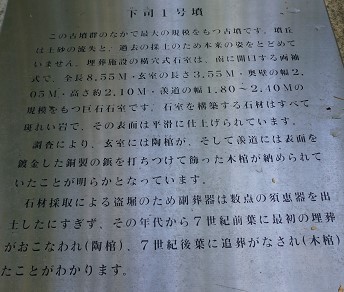 下司1号墳
この古墳群のなかで最大の規模をもつ古墳です。墳丘
は土砂の流失と、過去の採土のため本来の姿をとどめて
いません。埋葬施設の横穴式石室は、南に開口する両袖
式で、全長8,55M・玄室の長さ3,55M・奥壁の幅2,
05M・高さ約2,10M・羨道の幅1,80~2,40Mの
規模をもつ巨石石室です。石室を構築する石材はすべて
斑れい岩で、その表面は平滑に仕上げられています。
調査により、玄室には陶棺が、そして羨道には表面を
鍍金した銅製の鋲を打ちつけて飾った木棺が納められて
いたことが明らかとなっています。
石材採取による盗掘のため副葬器は数点の須恵器を出
土したにすぎず、その年代から7世紀前葉に最初の埋葬
がおこなわれ(陶棺)、7世紀後葉に追葬がなされ(木棺)
たことがわかります。